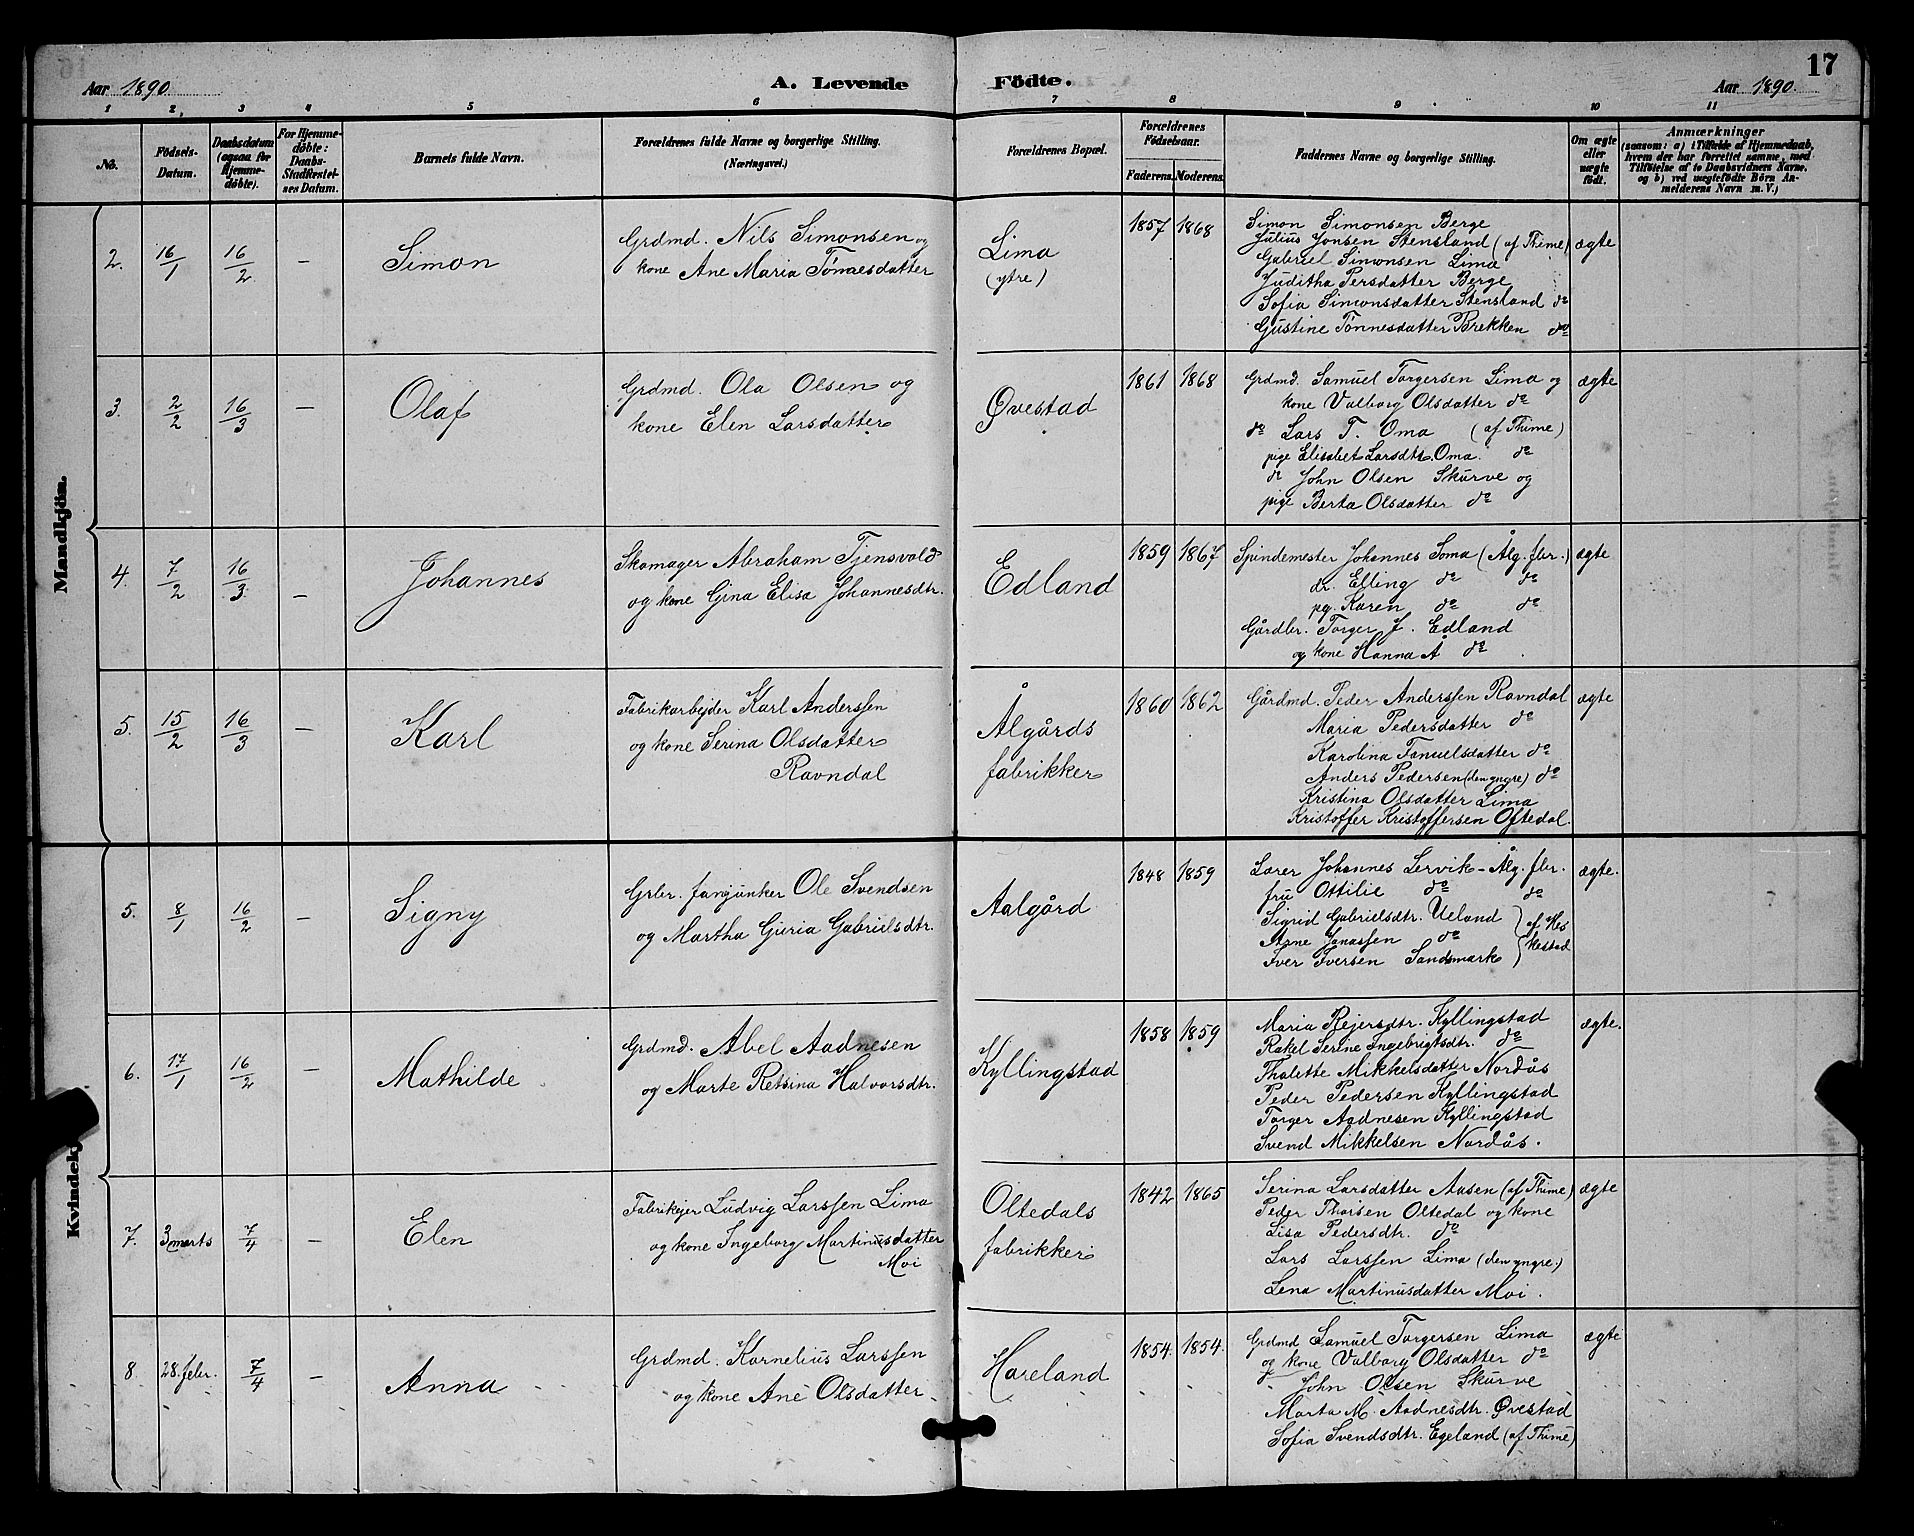 17
Aar 1890. A. Levende Födte. Aar 1890.
1 2, 3 4 5 6 7 8 9 10 11
No. Födsels-Datum. Daabsdatum (ogsaa for Hjemmedöbte). For Hjemmedöbte: Daabs-Stadfæstelses Datum. Barnets fulde Navn. Forældrenes fulde Navne og borgerlige Stilling. (Næringsvei.) Forældrenes Bopæl. Forældrenes Födselsaar. Faderens. Moderens. Faddernes Navne og borgerlige Stilling. Om ægte eller uægte födt. Anmærkninger (saasom: a) i Tilfælde af Hjemmedaab, hvem der har forrettet samme, med Tilföielse af to Daabsvidners Navne, og b) ved uægtefödte Börn Anmelderens Navn m. V.;
Mandkjön.
2. 16/1 16/2 — Simon
Grdmd. Nils Simonsen og
kone Ane Maria Tønnesdatter
Lima
(ytre)
1857 1868
Simon Simonsen Berge
Julius Jonsen Stensland (af Thime)
Gabriel Simonsen Lima
Juditha Persdatter Berge
Sofia Simonsdatter Stensland do
Gustine Tønnesdatter Brekken do
ægte
3. 2/2 16/3 — Olaf
Grdmd. Ola Olsen og
kone Elen Larsdatter
Øvestad
1861 1868
Grdmd. Samuel Torgersen Lima og
kone Valborg Olsdatter do
do Lars T. Oma (af Thime)
pige Elisabet Larsdtr. Oma. do
dr John Olsen Skurve og
pige Berta Olsdatter do
ægte
4. 7/2 16/3 — Johannes
Skomager Abraham Tjensvold
og kone Gina Elisa Johannesdtr.
Edland
1859 1867
Spindemester Johannes Soma (Ålg. fbr.)
dr. Elling do do
pg. Karen do do
Gårdbr. Torger J. Edland
og kone Hanna A do
ægte
5. 15/2 16/3 — Karl
Fabrikarbejder Karl Anderssen
og kone Serina Olsdatter
Ravndal
Ålgårds
fabrikker
1860 1862
Gårdmd. Peder Anderssen Ravndal
Maria Pedersdatter do
Karolina Tanuelsdatter do
Anders Pedersen (den yngre) do
Kristina Olsdatter Lima
Kristoffer Kristoffersen Oftedal.
ægte
Kvindekj
5. 8/1 16/2 — Signy
Grbr. fanjunker Ole Svendsen
og Martha Guria Gabrielsdtr.
Aalgård
1848 1859
Lærer Johannes Lervik - Ålg. fbr.
fru Ottilie do do
Sigrid Gabrielsdtr. Ueland
Aane Janassen do
Iver Iversen Sandsmark
af Hes
kestad
ægte.
6. 17/1 16/2 — Mathilde
Grdmd. Abel Aadnesen
og Marte Retsina Halvorsdtr.
Kyllingstad
1858 1859
Maria Rejersdtr. Kyllingstad
Rakel Serine Ingebrigtsdtr. do
Thalette Mikkelsdatter Nordås
Peder Pedersen Kyllingstad
Torger Aadnesen Kyllingstad
Svend Mikkelsen Nordås.
ægte.
7. 3 marts 7/4 — Elen
Fabrikejer Ludvig Larssen Lima
og kone Ingeborg Martinusdatter
Moi
Oltedals
fabrikker
1842 1865
Serina Larsdatter Aasen (af Thime)
Peder Thorsen Oltedal og kone
Lisa Pedersdtr. do
Lars Larssen Lima (den yngre.)
Lena Martinusdatter Moi.
ægte
8. 28. febr. 7/4 — Anna
Grdmd. Kornelius Larssen
og kone Ane Olsdatter
Hareland
1854. 1854.
Grdmd Samuel Torgersen Lima
og kone Valborg Olsdatter do
John Olsen Skurve
Marta M. Aadnesdtr. Øvestad
Sofia Svendsdtr. Egeland (af Thime)
ægte